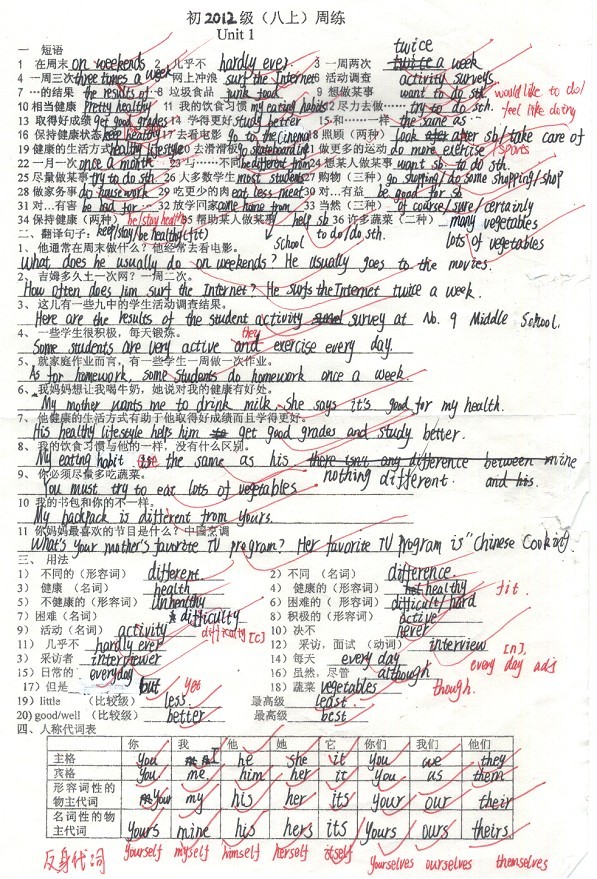 初2012级（八上）周练
Unit 1
一 短语
twice
1 在周末 on weekends 2 几乎不 hardly ever 3 一周两次 twice a week
4 一周三次 three times a week 网上冲浪 surf the Internet 6 活动调查 activity surveys
7 …的结果 the results of 8 垃圾食品 junk food 9 想做某事 want to do sth. would like to do/
feel like doing
10 相当健康 Pretty healthy 11 我的饮食习惯 my eating habits 12 尽力去做…… try to do sth.
13 取得好成绩 get good grades 14 学得更好 study better 15 和……一样 the same as
16 保持健康状态 keep healthy 17 去看电影 go to the cinema 18 照顾（两种） look after sb/take care of
19 健康的生活方式 healthy lifestyle 20 去滑滑板 go skateboarding 21 做更多的运动 do more exercise/sports
22 一月一次 once a month 23 与……不同 be different from 24 想某人做某事 want sb to do sth.
25 尽量做某事 try to do sth 26 人多数学生 most students 27 购物（三种） go shopping/do some shopping/shop
28 做家务事 do housework 29 吃更少的肉 eat less meet 30 对…有益 be good for sb
31 对…有害 be bad for … 32 放学回家 come home from 33 当然（三种） of course/sure/certainly
34 保持健康（两种） be/stay healthy 35 帮助某人做某事 help sb 36 许多蔬菜（二种） many vegetables
keep/stay/be healthy(fit) school to do/do sth. lots of vegetables
二、翻译句子：
1、他通常在周末做什么？他经常去看电影。
What does he usually do on weekends? He usually goes to the movies.
2、吉姆多久上一次网？一周二次。
How often does Jim surf the Internet? He surfs the Internet twice a week.
3、这儿有一些九中的学生活动调查结果。
Here are the results of the student activity survey at No. 9 Middle School.
4、一些学生很积极，每天锻炼。
they
Some students are very active and exercise every day.
5、就家庭作业而言，有一些学生一周做一次作业。
As for homework, some students do homework once a week.
6、我妈妈想让我喝牛奶，她说对我的健康有好处。
My mother wants me to drink milk. She says it's good for my health.
7、他健康的生活方式有助于他取得好成绩而且学得更好。
His healthy lifestyle helps him to get good grades and study better.
8、我的饮食习惯与他的一样，没有什么区别。
My eating habit is the same as his there isn't any difference between mine
nothing different. and his.
9、你必须尽量多吃蔬菜。
You must try to eat lots of vegetables
10 我的书包和你的不一样。
My backpack is different from yours.
11 你妈妈最喜欢的节目是什么？中国烹调
What's your mother's favorite TV program? Her favorite TV program is "Chinese Cooking.
三、用法
1） 不同的（形容词） different 2）不同 （名词） difference
3） 健康 （名词） health 4） 健康的（形容词） healthy fit.
5） 不健康的（形容词） Unhealthy 6）困难的（ 形容词） difficult/hard
7）困难（名词） difficulty 8）积极的（形容词） active
difficulty [C]
9） 活动（名词） activity 10）决不 never
11） 几乎不 hardly ever 12） 采访，面试 （动词） interview [n].
3） 采访者 interviewer 14）每天 every day every day adj
15）日常的 everyday 16）虽然，尽管 although
17）但是 but yet 18）蔬菜 vegetables though.
19）little （比较级） less 最高级 least
20) good/well （比较级） better 最高级 best
四、人称代词表
你 我 他 她 它 你们 我们 他们
主格 you I he she it you we they
宾格 you me him her it you us them
形容词性的物主代词 your my his her its your our their
名词性的物主代词 yours mine his hers its yours ours theirs
反身代词 yourself myself himself herself itself yourselves ourselves themselves